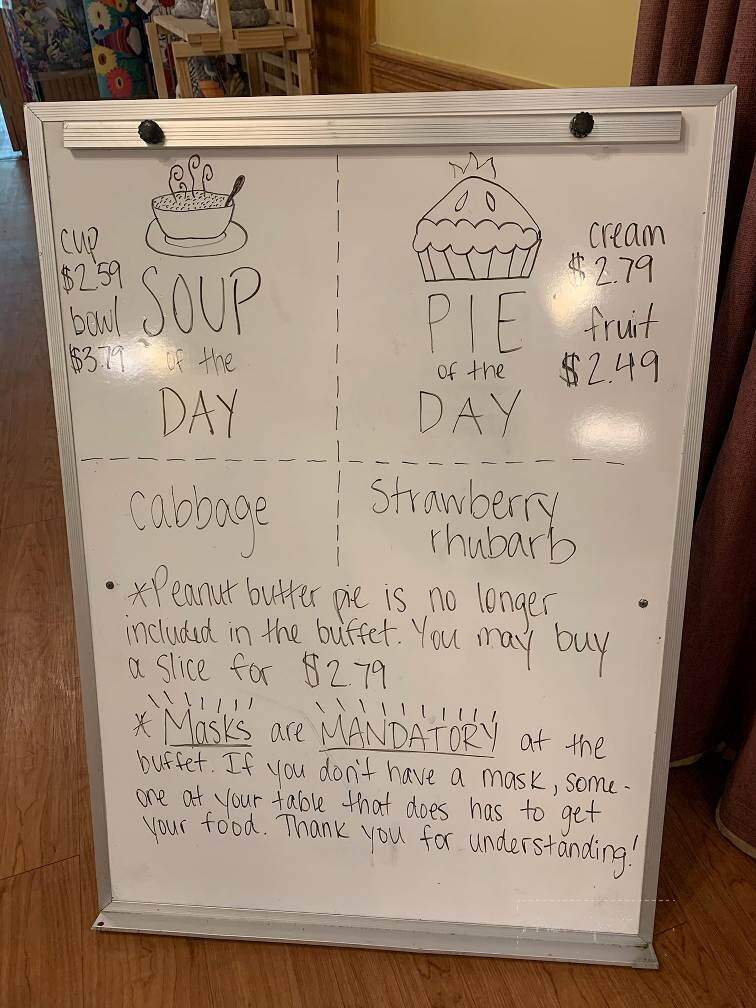 cup
$2.59
bowl
$3.79
SOUP
of the
DAY
PIE
of the
DAY
cream
$2.79
fruit
$2.49
cabbage
strawberry
rhubarb
*Peanut butter pie is no longer
included in the buffet. You may buy
a slice for $2.79
* Masks are MANDATORY at the
buffet. If you don't have a mask, some-
one at your table that does has to get
your food. Thank you for understanding!